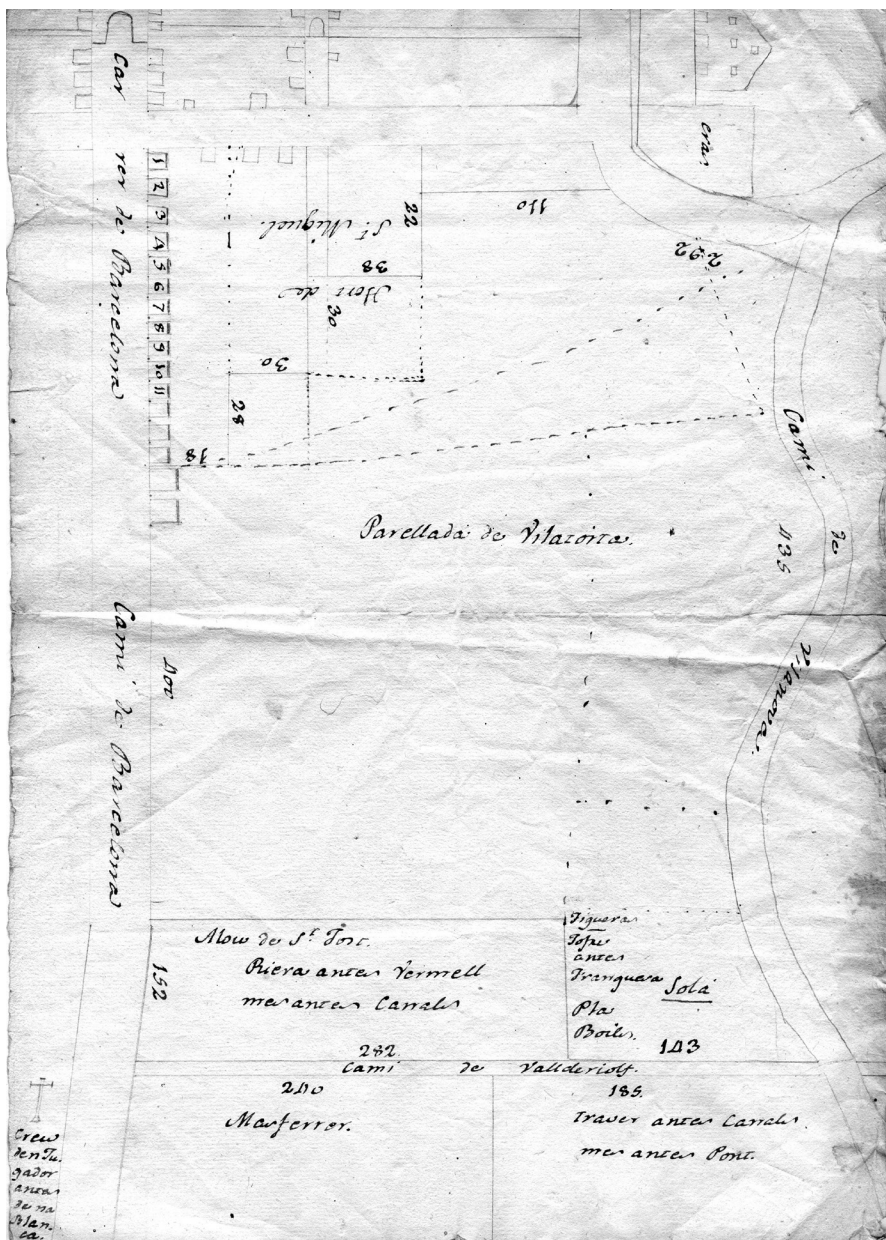 Carrer de Barcelona
eras
1
2
3
4
5
6
7
8
9
10
11
Hort de
St. Miquel.
22
38
30
30
28
18
110
292
Camí de Vilanova.
435
Parellada de Vilatorta.
Camí de Barcelona
400
152
Alou de St. Jose.
Riera antes Vermell
mes antes Canals
282
Figueras
antes
Franquesa
Pla
Boiles.
Solá
143
Camí de Vallderiolf.
240
Masferrer.
185.
Traver antes Canals
mes antes Pont.
Creu
den Ju-
gador
antes
de na
Blan-
ca.